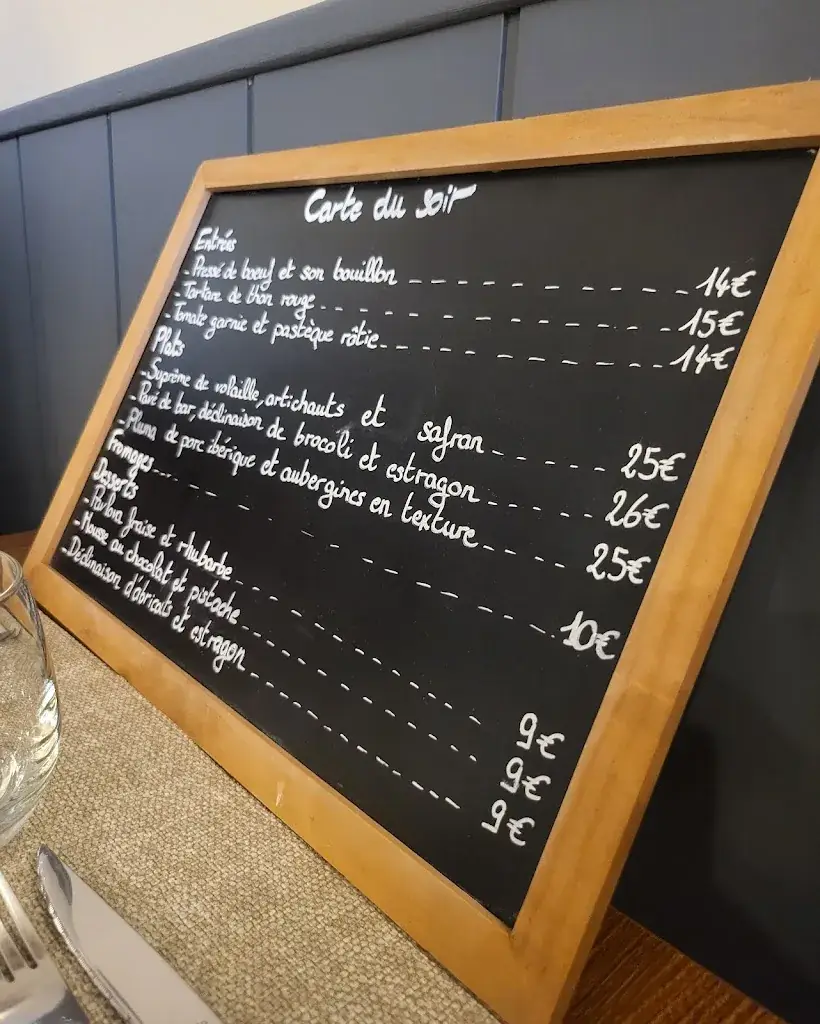 Carte du soir
Entrées
- Pressé de boeuf et son bouillon - - - - - - - - - - 14€
- Tartare de thon rouge - - - - - - - - - - - - 15€
- Tomate garnie et pastèque rôtie - - - - - - - - - - 14€
Plats
- Suprême de volaille, artichauts et safran - - - - - - 25€
- Pavé de bar, déclinaison de brocoli et estragon - - - - - - 26€
- Pluma de porc ibérique et aubergines en texture - - - - - 25€
Fromages - - - - - - - - - - - - 10€
Desserts
- Pavlova fraise et rhubarbe - - - - - - - - - - - - 9€
- Mousse au chocolat et pistache - - - - - - - - - - - - 9€
- Déclinaison d'abricots et estragon - - - - - - - - - - - - 9€